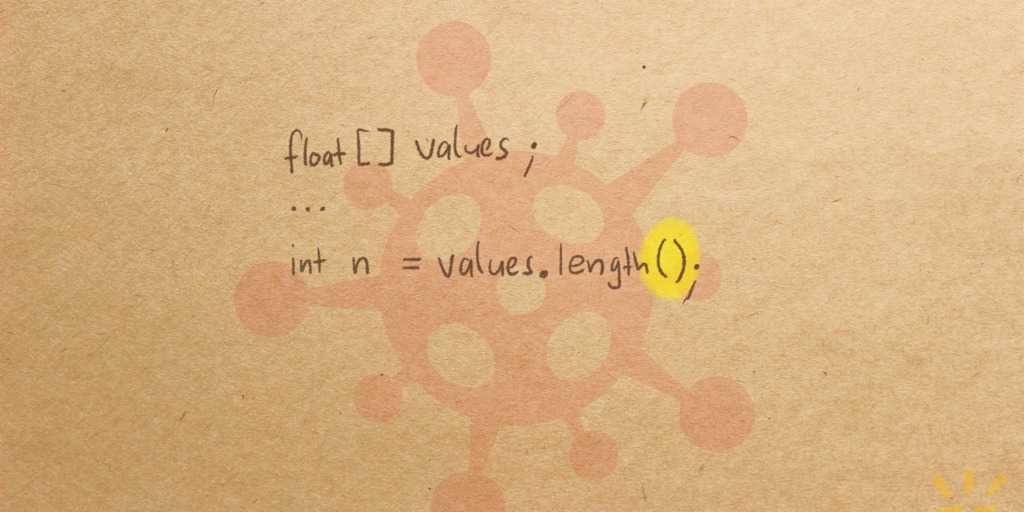 float[] values;
...
int n = values.length();